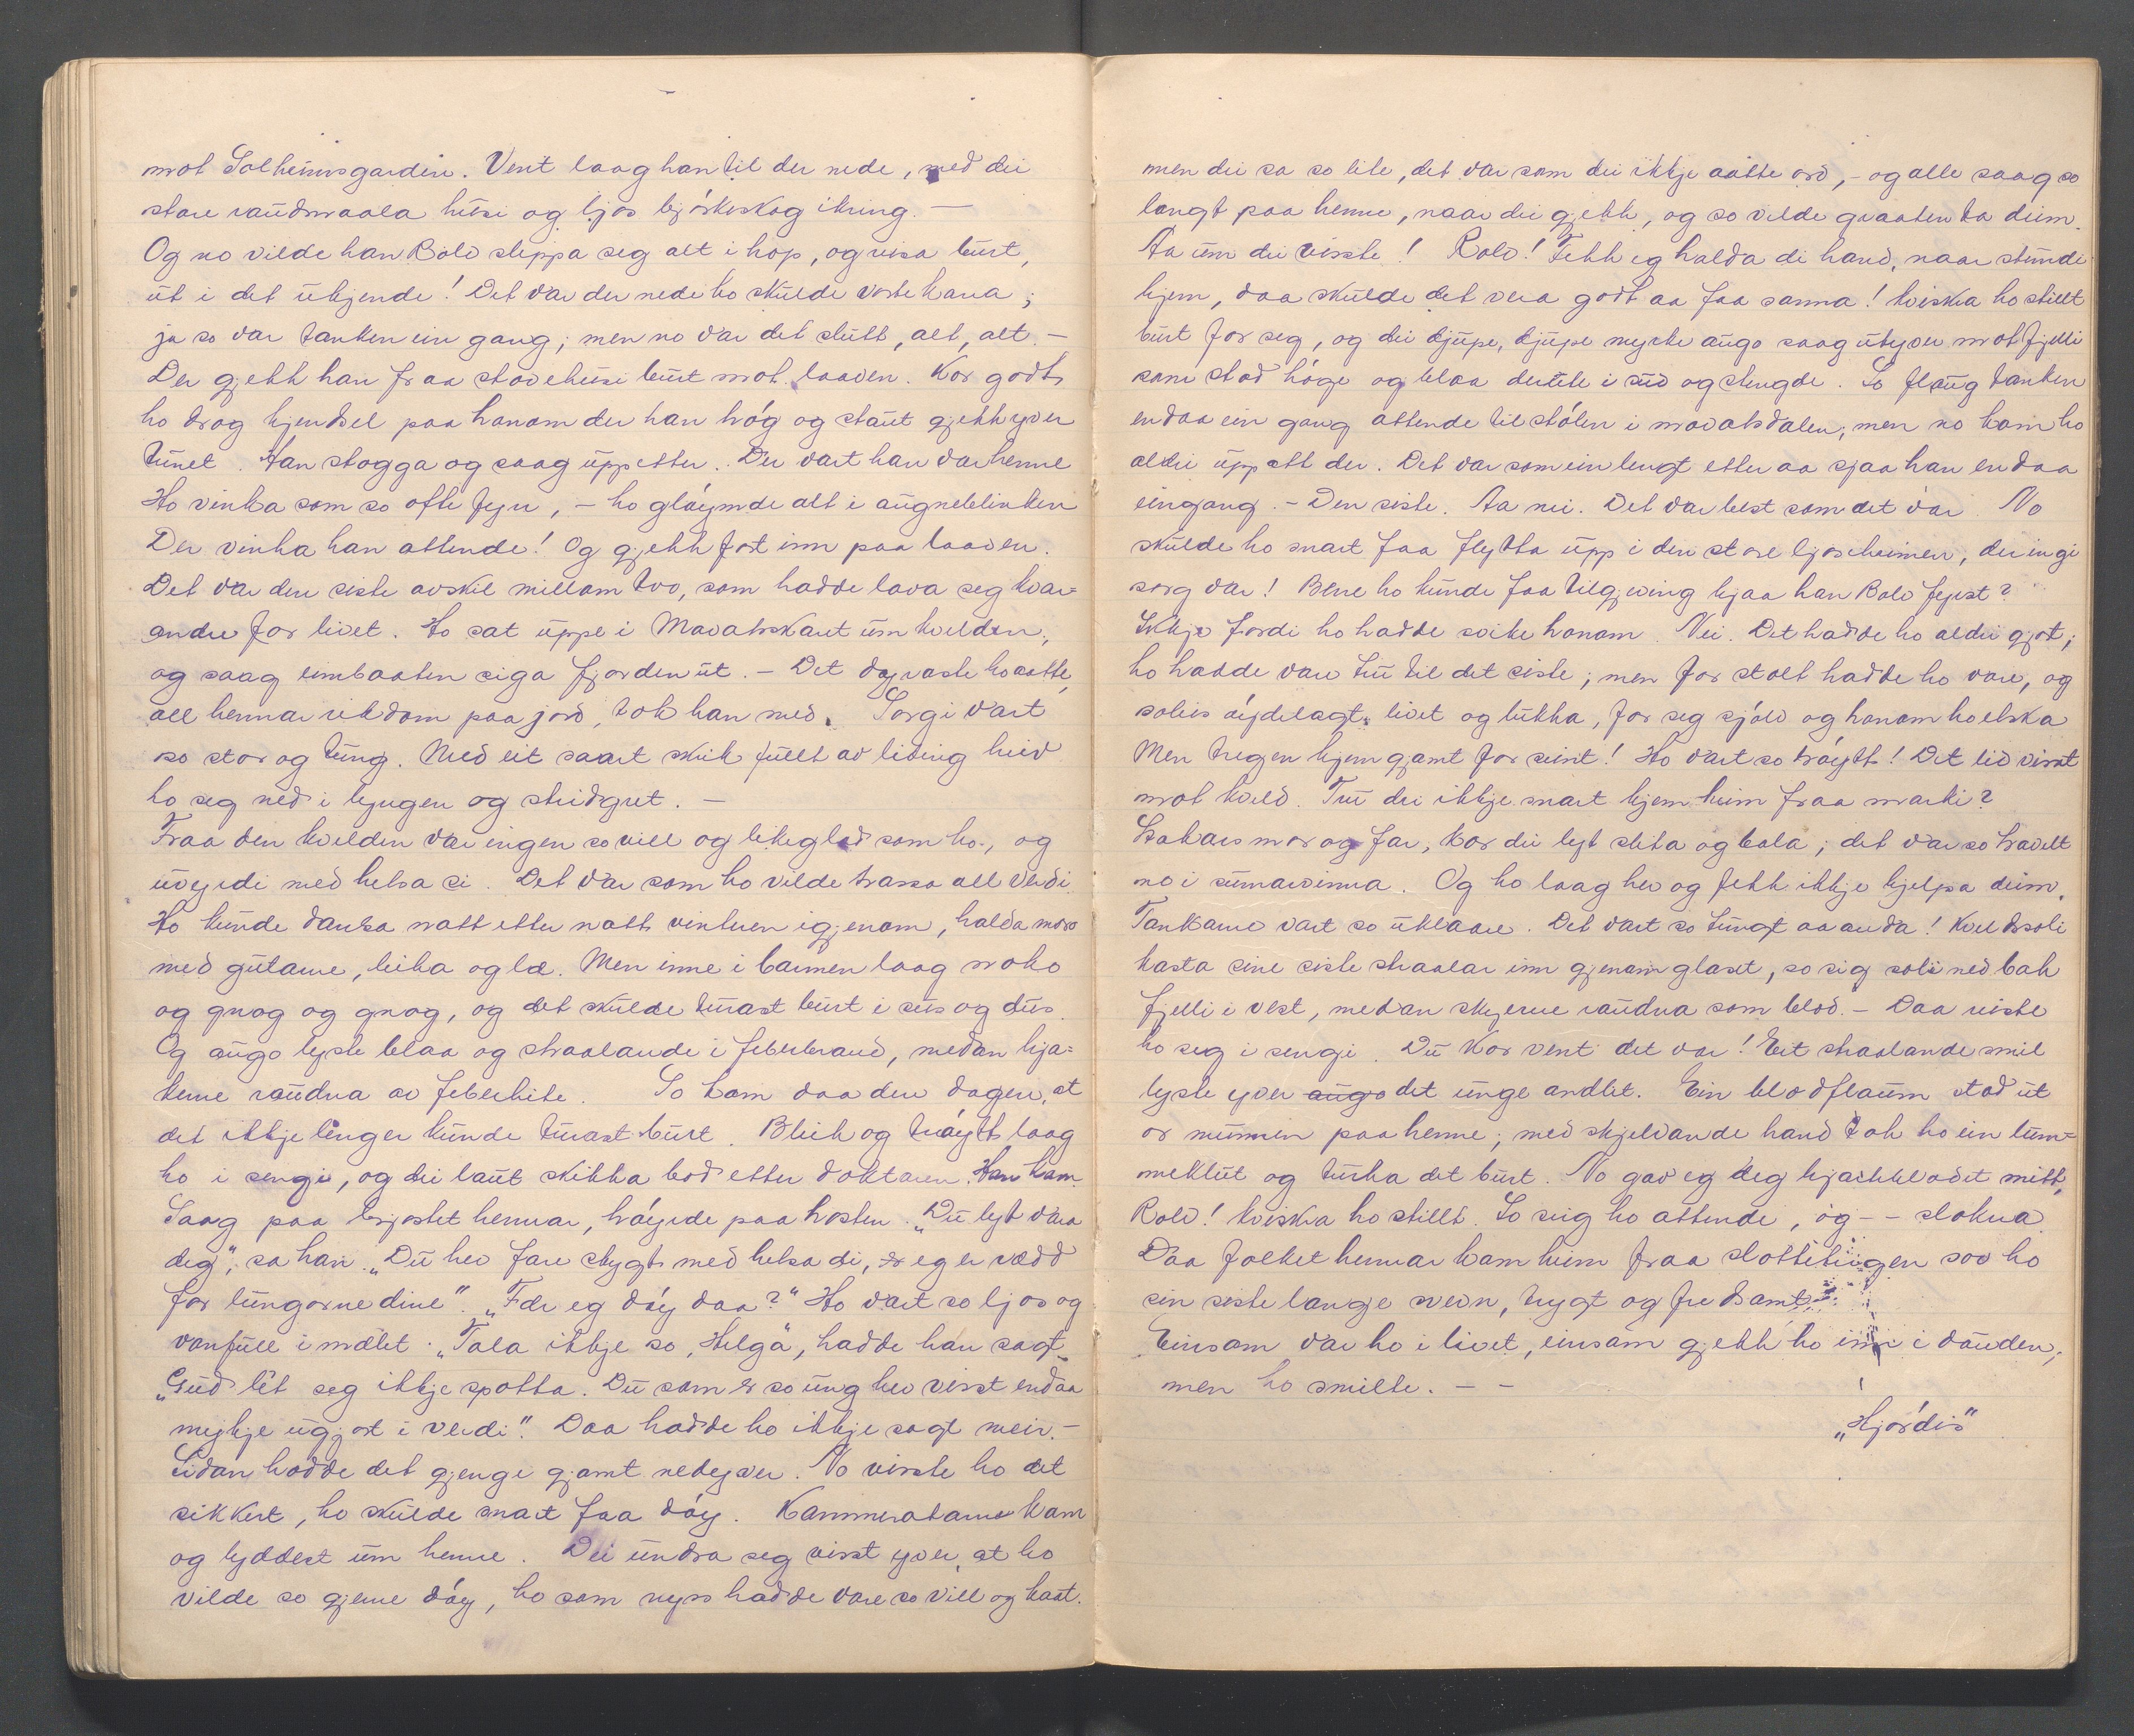 mot Solheimsgarden. Vent laag han til der nede, med dei
store raudmaala husi og ljos bjórkeskog ikring. —
Og no vilde han Rolv sleppa seg alt i hop, og reisa burt,
ut i det ukjende! Det var der nede ho skulde vorte kona;
ja so var tanken ein gang; men no var det slutt, alt, alt. —
Der gjekk han fraa stovehusi burt mot laaven. Kor godt
ho drog kjendsel paa honom der han hóg og staut gjekk yver
tunet. Han stogga og saag uppetter. Der vart han var henne
Ho vinka som so ofte fyrr, — ho glóymde alt i augneblinken
Der vinka han attende! Og gjekk fort inn paa laaven.
Det var den siste avskil millom tvo, som hadde lova seg kvar-
andre for livet. Ho sat uppe i Movatsskart um kvelden,
og saag eimbaaten siga fjorden ut. — Det dyraste ho aatte,
all hennar rikdom paa jord, tok han med. Sorgi vart
so stor og tung. Med eit saart skrik fullt av liding hiv
ho seg ned i lyngen og stridgret. —
Fraa den kvelden var ingen so vill og likeglad som ho, og
uvyrdi med helsa si. Det var som ho vilde trassa all verdi.
Ho kunde dansa natt etter natt vinteren igjenom, halda moro
med gutarne, leika og læ. Men inne i barmen laag noko
og gnog og gnog, og det skulde turast burt i sus og dus.
Og augo lyste blaa og straalande i feberbrand, medan kja-
kerne raudna av feberhite. So kom daa den dagen, at
det ikkje lenger kunde turast burt. Bleik og tróytt laag
ho i sengi, og dei laut skikka bod etter doktaren. Han kom.
Saag paa brjostet hennar, hóyrde paa hosten. „Du lyt vara
deg", sa han. „Du hev fare stygt med helsa di, eg er rædd
for lungorne dine". „Fær eg dóy daa?" Ho vart so ljos og
vonfull i mælet. „Tala ikkje so, Helga", hadde han sagt.
„Gud lét seg ikkje spotta. Du som er so ung hev visst endaa
mykje ugjort i verdi". Daa hadde ho ikkje sagt meir. —
Sidan hadde det gjenge jamt nedyver. No visste ho det
sikkert, ho skulde snart faa dóy. Kammeratarne kom
og lyddest um henne. Dei undra seg visst yver, at ho
vilde so gjerne dóy, ho som nyss hadde vore so vill og kaat.
men dei sa so lite, det var som dei ikkje aatte ord, — og alle saag so
langt paa henne, naar dei gjekk, og so vilde graaten ta deim.
Aa um dei visste! Rolv! Fekk eg halda di hand, naar stundi
kjem, daa skulde det vera godt aa faa sovna! kviskra ho stillt
burt for seg, og dei djupe, djupe myrke augo saag utyver mot fjelli
som stod hóge og blaa derute i sud og stengde. So flaug tanken
endaa ein gang attende til stólen i Movatsdalen; men no kom ho
aldri upp att der. Det var som ein lengt etter aa sjaa han endaa
eingang. — Den siste. Aa nei. Det var best som det var. No
skulde ho snart faa flytta upp i den store ljosheimen, der ingi
sorg var! Berre ho kunde faa tilgjeving hjaa han Rolv fyrst?
Ikkje fordi ho hadde svike honom. Nei. Det hadde ho aldri gjort;
ho hadde vore tru til det siste; men for stolt hadde ho vore, og
soleis óydelagt livet og lukka, for seg sjólv og honom ho elska
Men tregen kjem jamt for seint! Ho vart so tróytt! Det leid visst
mot kveld. Tru dei ikkje snart kjem heim fraa marki?
Stakars mor og far, kor dei lyt slita og bala; det var so travelt
no i sumarvinna. Og ho laag her og fekk ikkje hjelpa deim.
Tankarne vart so uklaare. Det vart so tungt aa anda! Kveldsoli
kasta sine siste straalar inn gjenom glaset, so seig soli ned bak
fjelli i vest, medan skyerne raudna som blod. — Daa reiste
ho seg i sengi. Du kor vent det var! Eit straalande smil
lyste yver augo det unge andlet. Ein blodflaum stod ut
or munnen paa henne; med skjelvande hand tok ho ein lum-
meklut og turka det burt. No gav eg deg hjarteblodet mitt,
Rolv! kviskra ho stillt. So seig ho attende, og — — slokna
Daa folket hennar kom heim fraa slottteigen sov ho
sin siste lange svevn, trygt og fredsamt.
Einsam var ho i livet, einsam gjekk ho inn i dauden;
men ho smilte. — —
„Hjórdis"